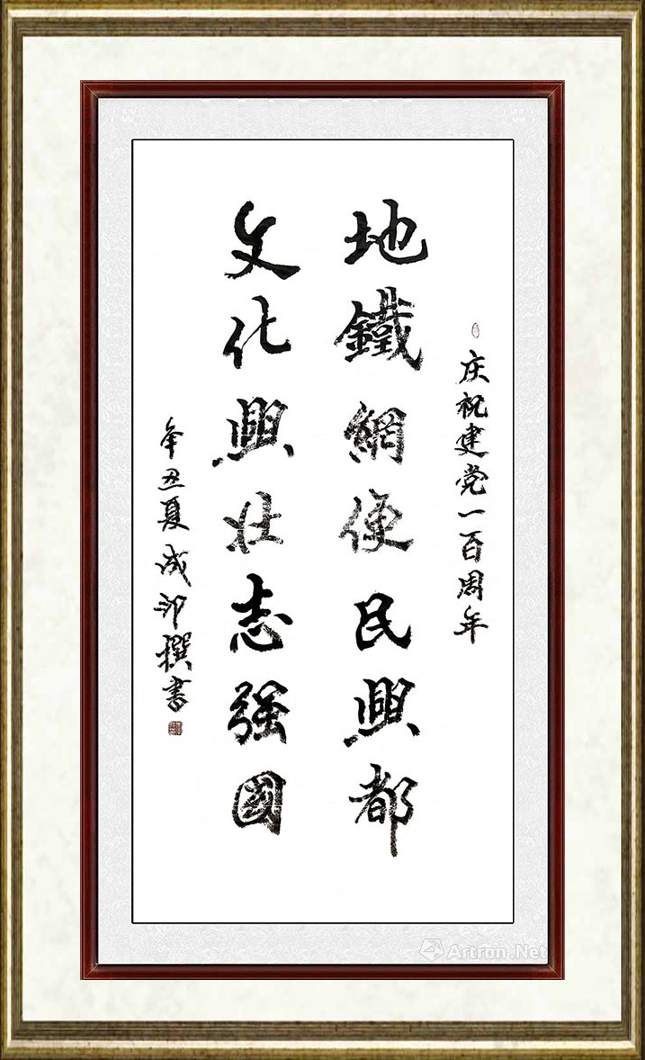 庆祝建党一百周年
地鐵網便民興都
文化興壮志強國
辛丑夏成印撰書
Artron.Net